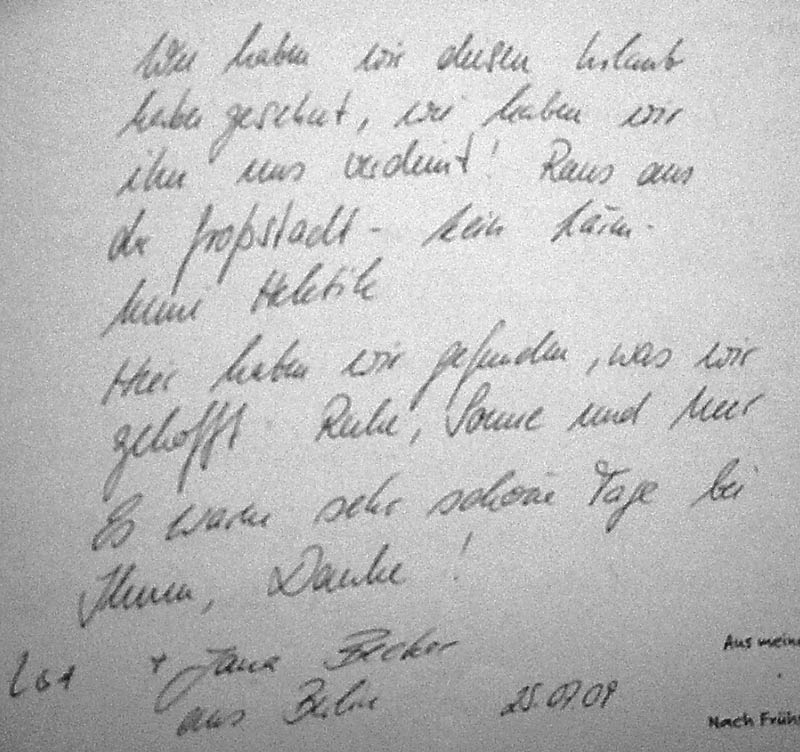 Wie haben wir diesen Urlaub
herbei gesehnt, wie haben wir
ihn uns verdient! Raus aus
der Großstadt - kein Lärm -
keine Hektik
Hier haben wir gefunden, was wir
gehofft. Ruhe, Sonne und Meer
Es waren sehr schöne Tage bei
Ihnen, Danke!
+ Jana Becker
aus Berlin 25.07.09
Aus meine
Nach Frühs